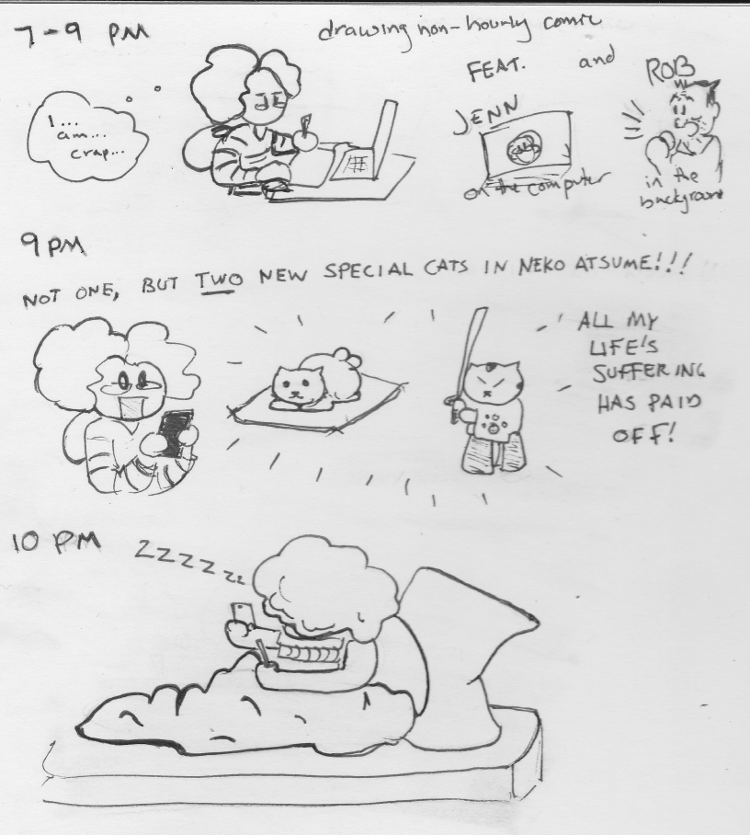 7-9 PM
drawing non-hourly comic
FEAT.
and
JENN
ROB
on the computer
in the
background
I...
am...
crap...
9 PM
NOT ONE, BUT TWO NEW SPECIAL CATS IN NEKO ATSUME!!!
ALL MY
LIFE'S
SUFFERING
HAS PAID
OFF!
10 PM
ZZZZZZz